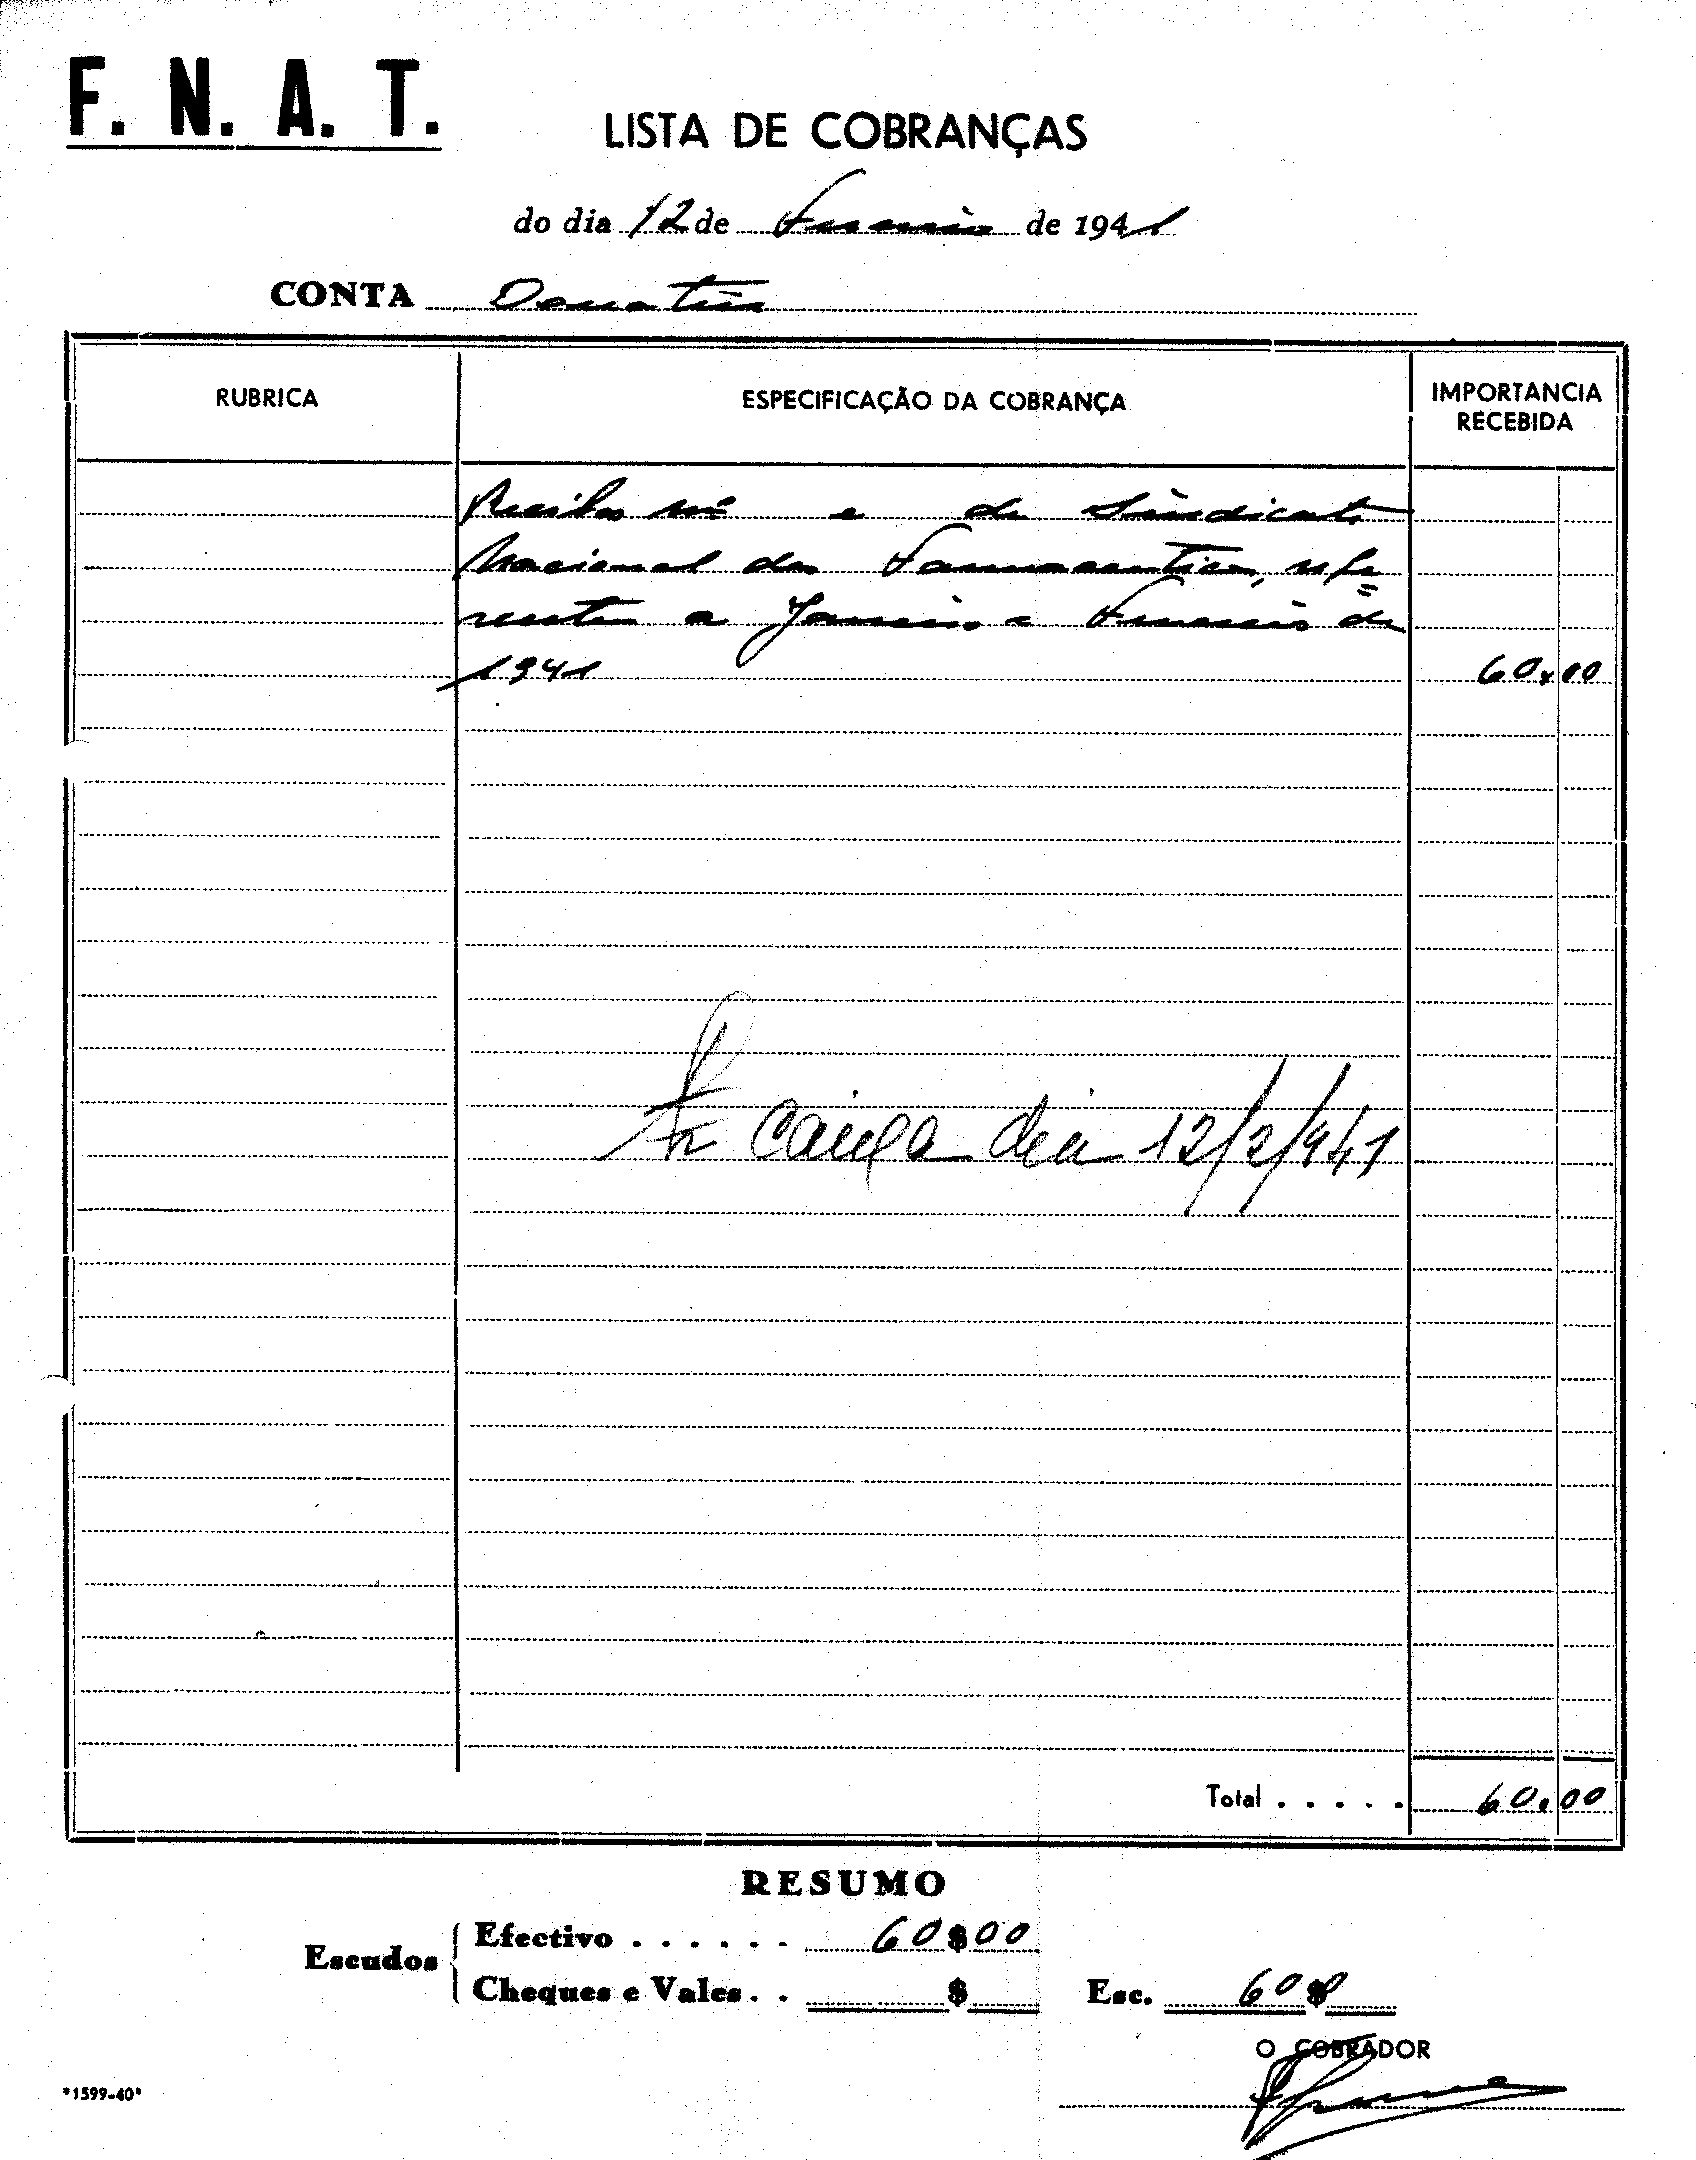 F. N. A. T.
LISTA DE COBRANÇAS
do dia 12 de Fevereiro de 1941
CONTA Donativos
RUBRICA
ESPECIFICAÇÃO DA COBRANÇA
IMPORTANCIA
RECEBIDA
Recibos nºs e do Sindicato
Nacional dos Farmaceuticos, refe
rentes a Janeiro e Fevereiro de
1941 60,00
Caixa dia 12/2/941
Total . . . . . 60,00
RESUMO
Escudos
Efectivo . . . . . . 60$00
Cheques e Vales . . $
Esc. 60$
O COBRADOR
*1599-40*